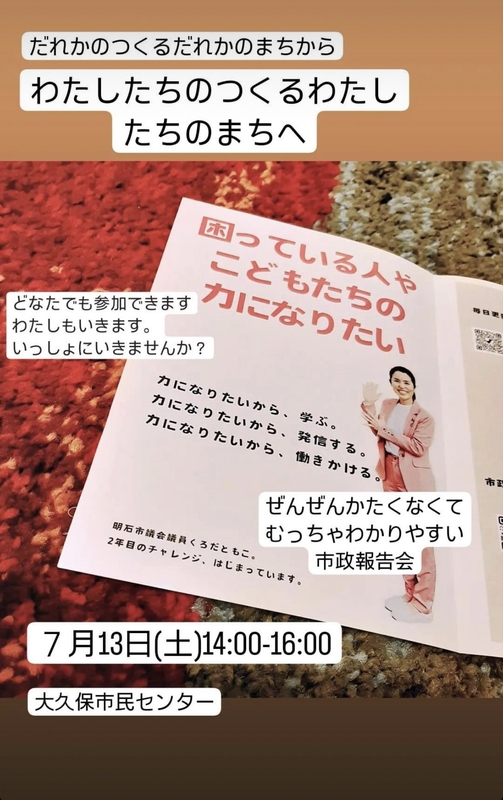 だれかのつくるだれかのまちから
わたしたちのつくるわたし
たちのまちへ
困っている人や
こどもたちの
力になりたい
どなたでも参加できます
わたしもいきます。
いっしょにいきませんか？
毎日更
力になりたいから、学ぶ。
力になりたいから、発信する。
力になりたいから、働きかける。
市政
ぜんぜんかたくなくて
むっちゃわかりやすい
市政報告会
明石市議会議員くろだともこ。
2年目のチャレンジ、はじまっています。
７月13日(土)14:00-16:00
大久保市民センター